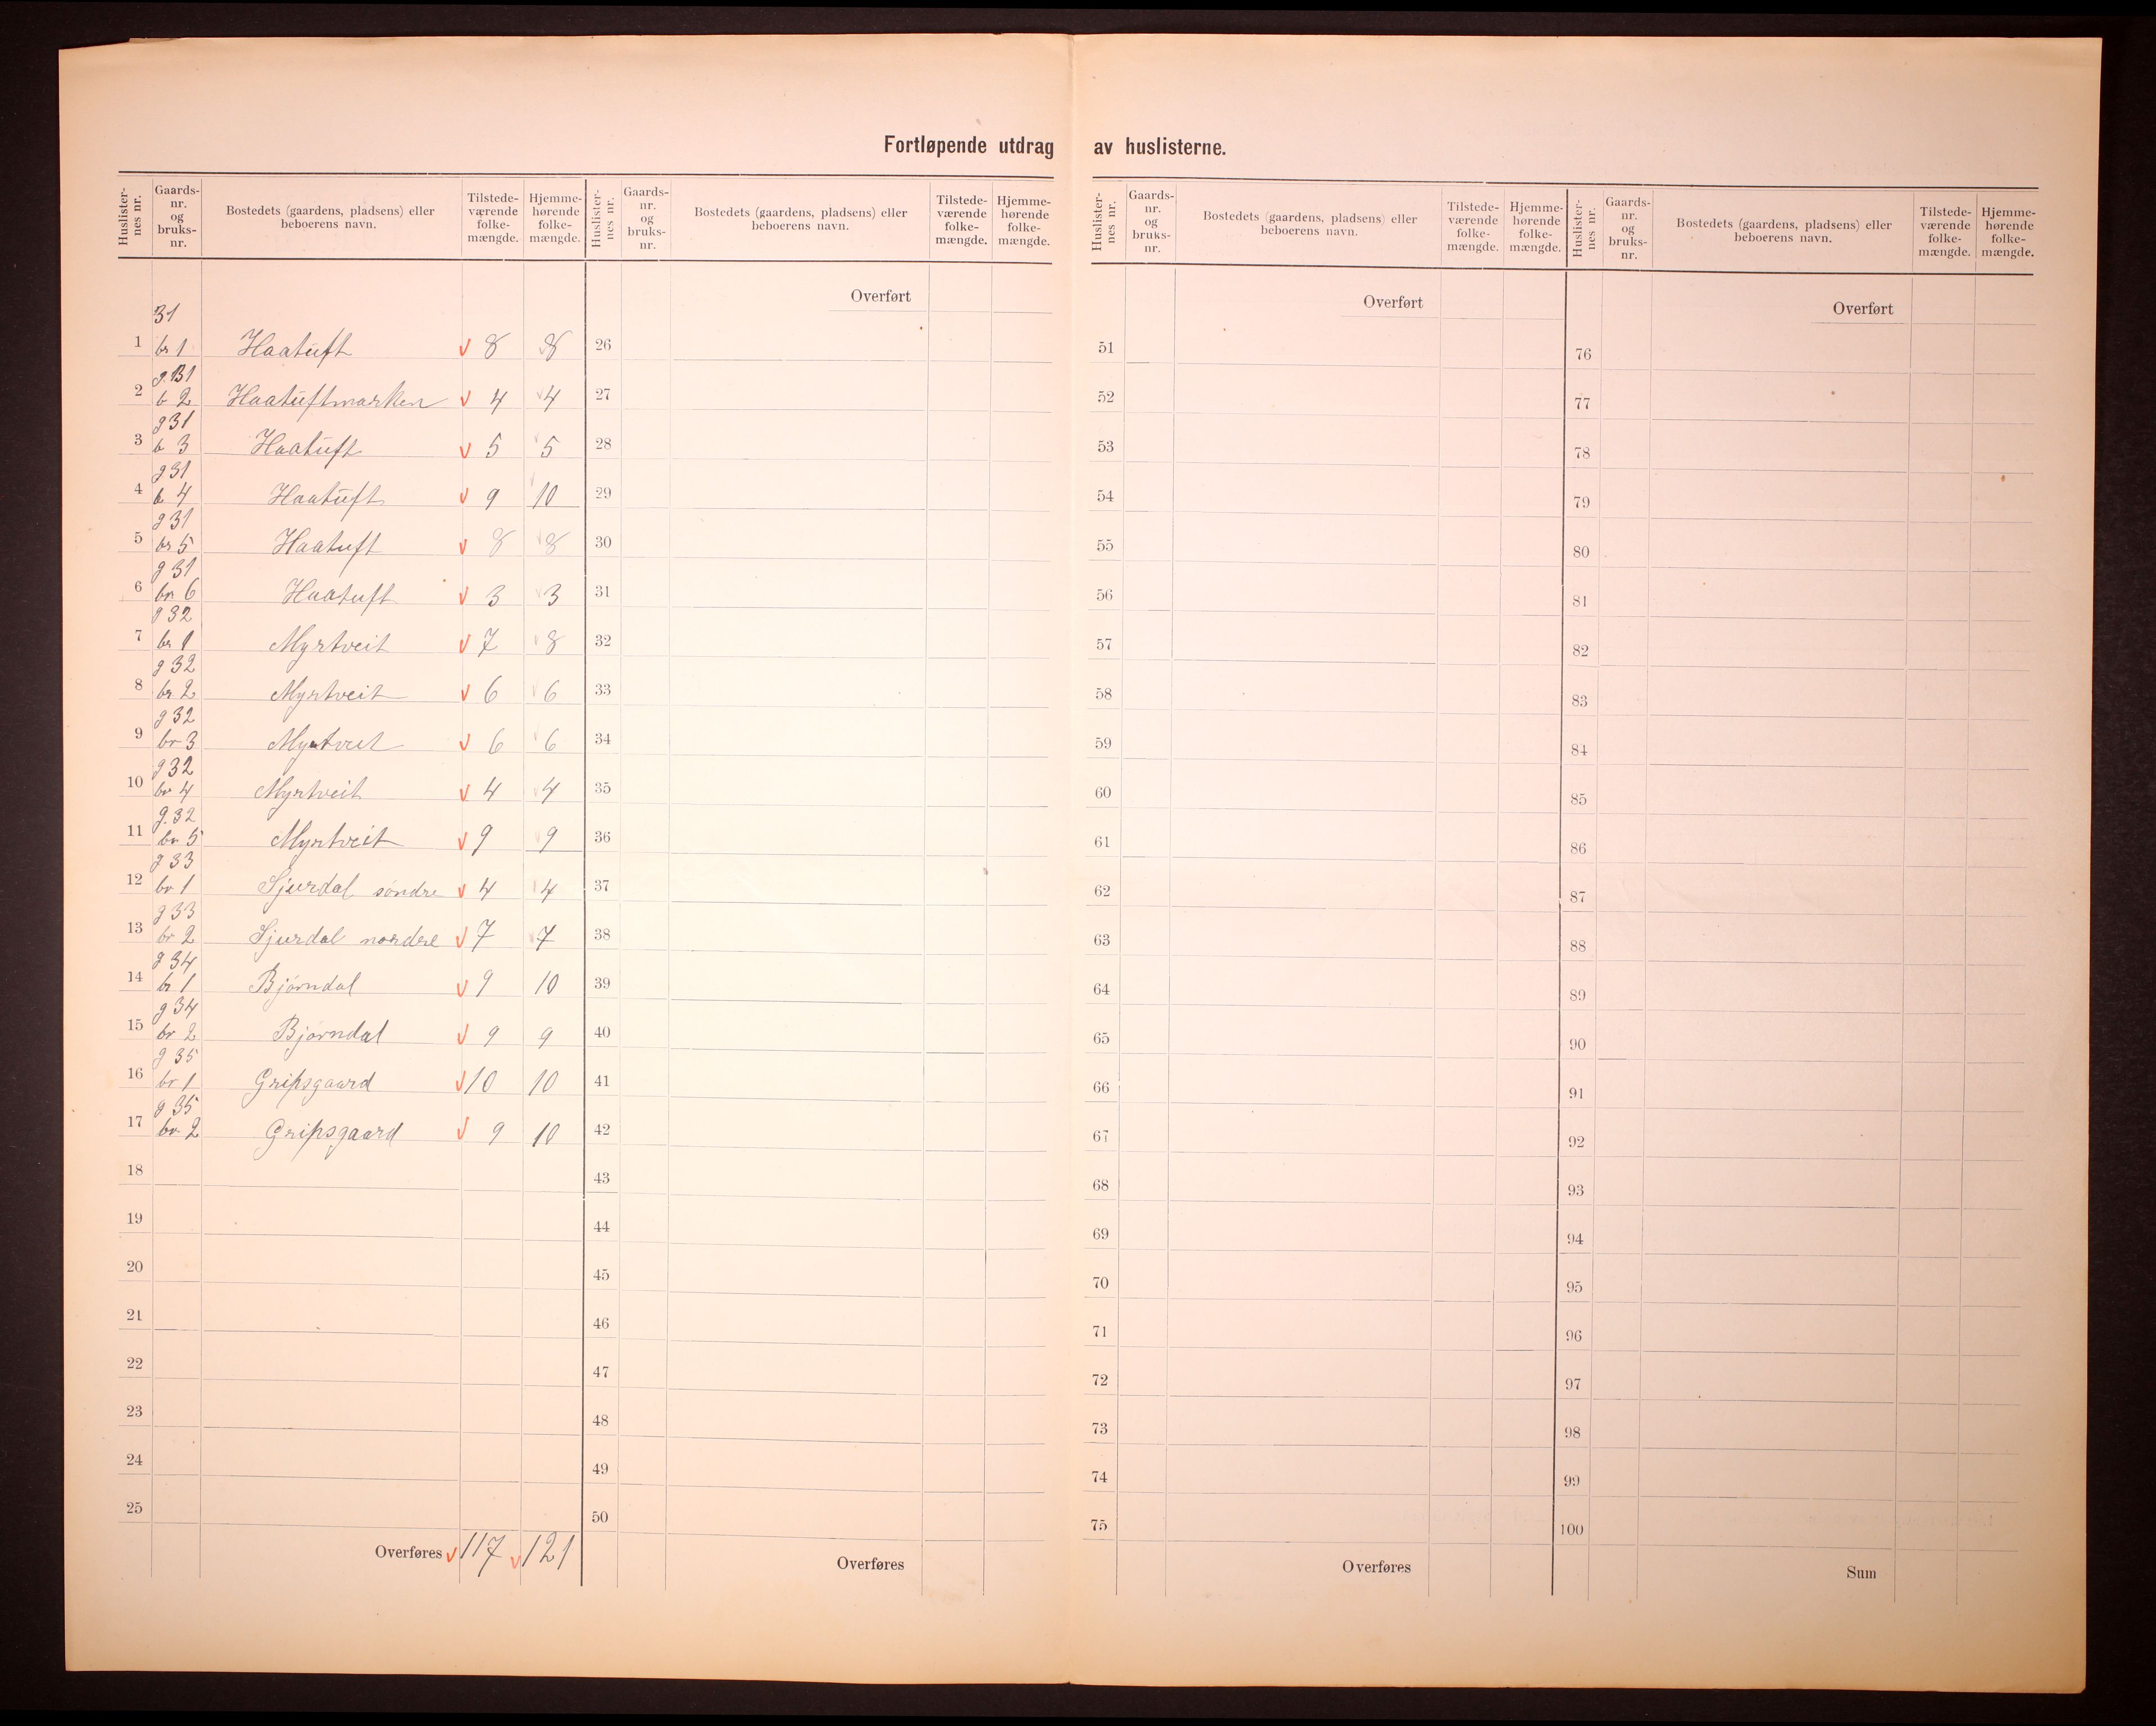 Fortløpende utdrag av huslisterne.
Huslister-nes nr. Gaards-nr. og bruks-nr. Bostedets (gaardens, pladsens) eller beboerens navn. Tilstede-værende folke-mængde. Hjemme-hørende folke-mængde.
31
1 br 1 Haatuft v 8 8
g. 31
2 b 2 Haatuftmarken v 4 4
g 31
3 b 3 Haatuft v 5 5
g 31
4 b 4 Haatuft v 9 10
g 31
5 br 5 Haatuft v 8 8
g 31
6 br. 6 Haatuft v 3 3
g 32
7 br 1 Myrtveit v 7 8
g 32
8 br 2 Myrtveit v 6 6
g 32
9 br 3 Myrtveit v 6 6
g 32
10 br 4 Myrtveit v 4 4
g. 32
11 br 5 Myrtveit v 9 9
g 33
12 br 1 Sjurdal søndre v 4 4
g 33
13 br 2 Sjurdal nordre v 7 7
g 34
14 br 1 Bjørndal v 9 10
g 34
15 br 2 Bjørndal v 9 9
g 35
16 br 1 Gripsgaard v 10 10
g 35
17 br. 2 Gripsgaard v 9 10
18
19
20
21
22
23
24
25
Overføres v 117 v 121
Huslister-nes nr. Gaards-nr. og bruks-nr. Bostedets (gaardens, pladsens) eller beboerens navn. Tilstede-værende folke-mængde. Hjemme-hørende folke-mængde.
Overført
26
27
28
29
30
31
32
33
34
35
36
37
38
39
40
41
42
43
44
45
46
47
48
49
50
Overføres
Huslister-nes nr. Gaards-nr. og bruks-nr. Bostedets (gaardens, pladsens) eller beboerens navn. Tilstede-værende folke-mængde. Hjemme-hørende folke-mængde.
Overført
51
52
53
54
55
56
57
58
59
60
61
62
63
64
65
66
67
68
69
70
71
72
73
74
75
Overføres
Huslister-nes nr. Gaards-nr. og bruks-nr. Bostedets (gaardens, pladsens) eller beboerens navn. Tilstede-værende folke-mængde. Hjemme-hørende folke-mængde.
Overført
76
77
78
79
80
81
82
83
84
85
86
87
88
89
90
91
92
93
94
95
96
97
98
99
100
Sum